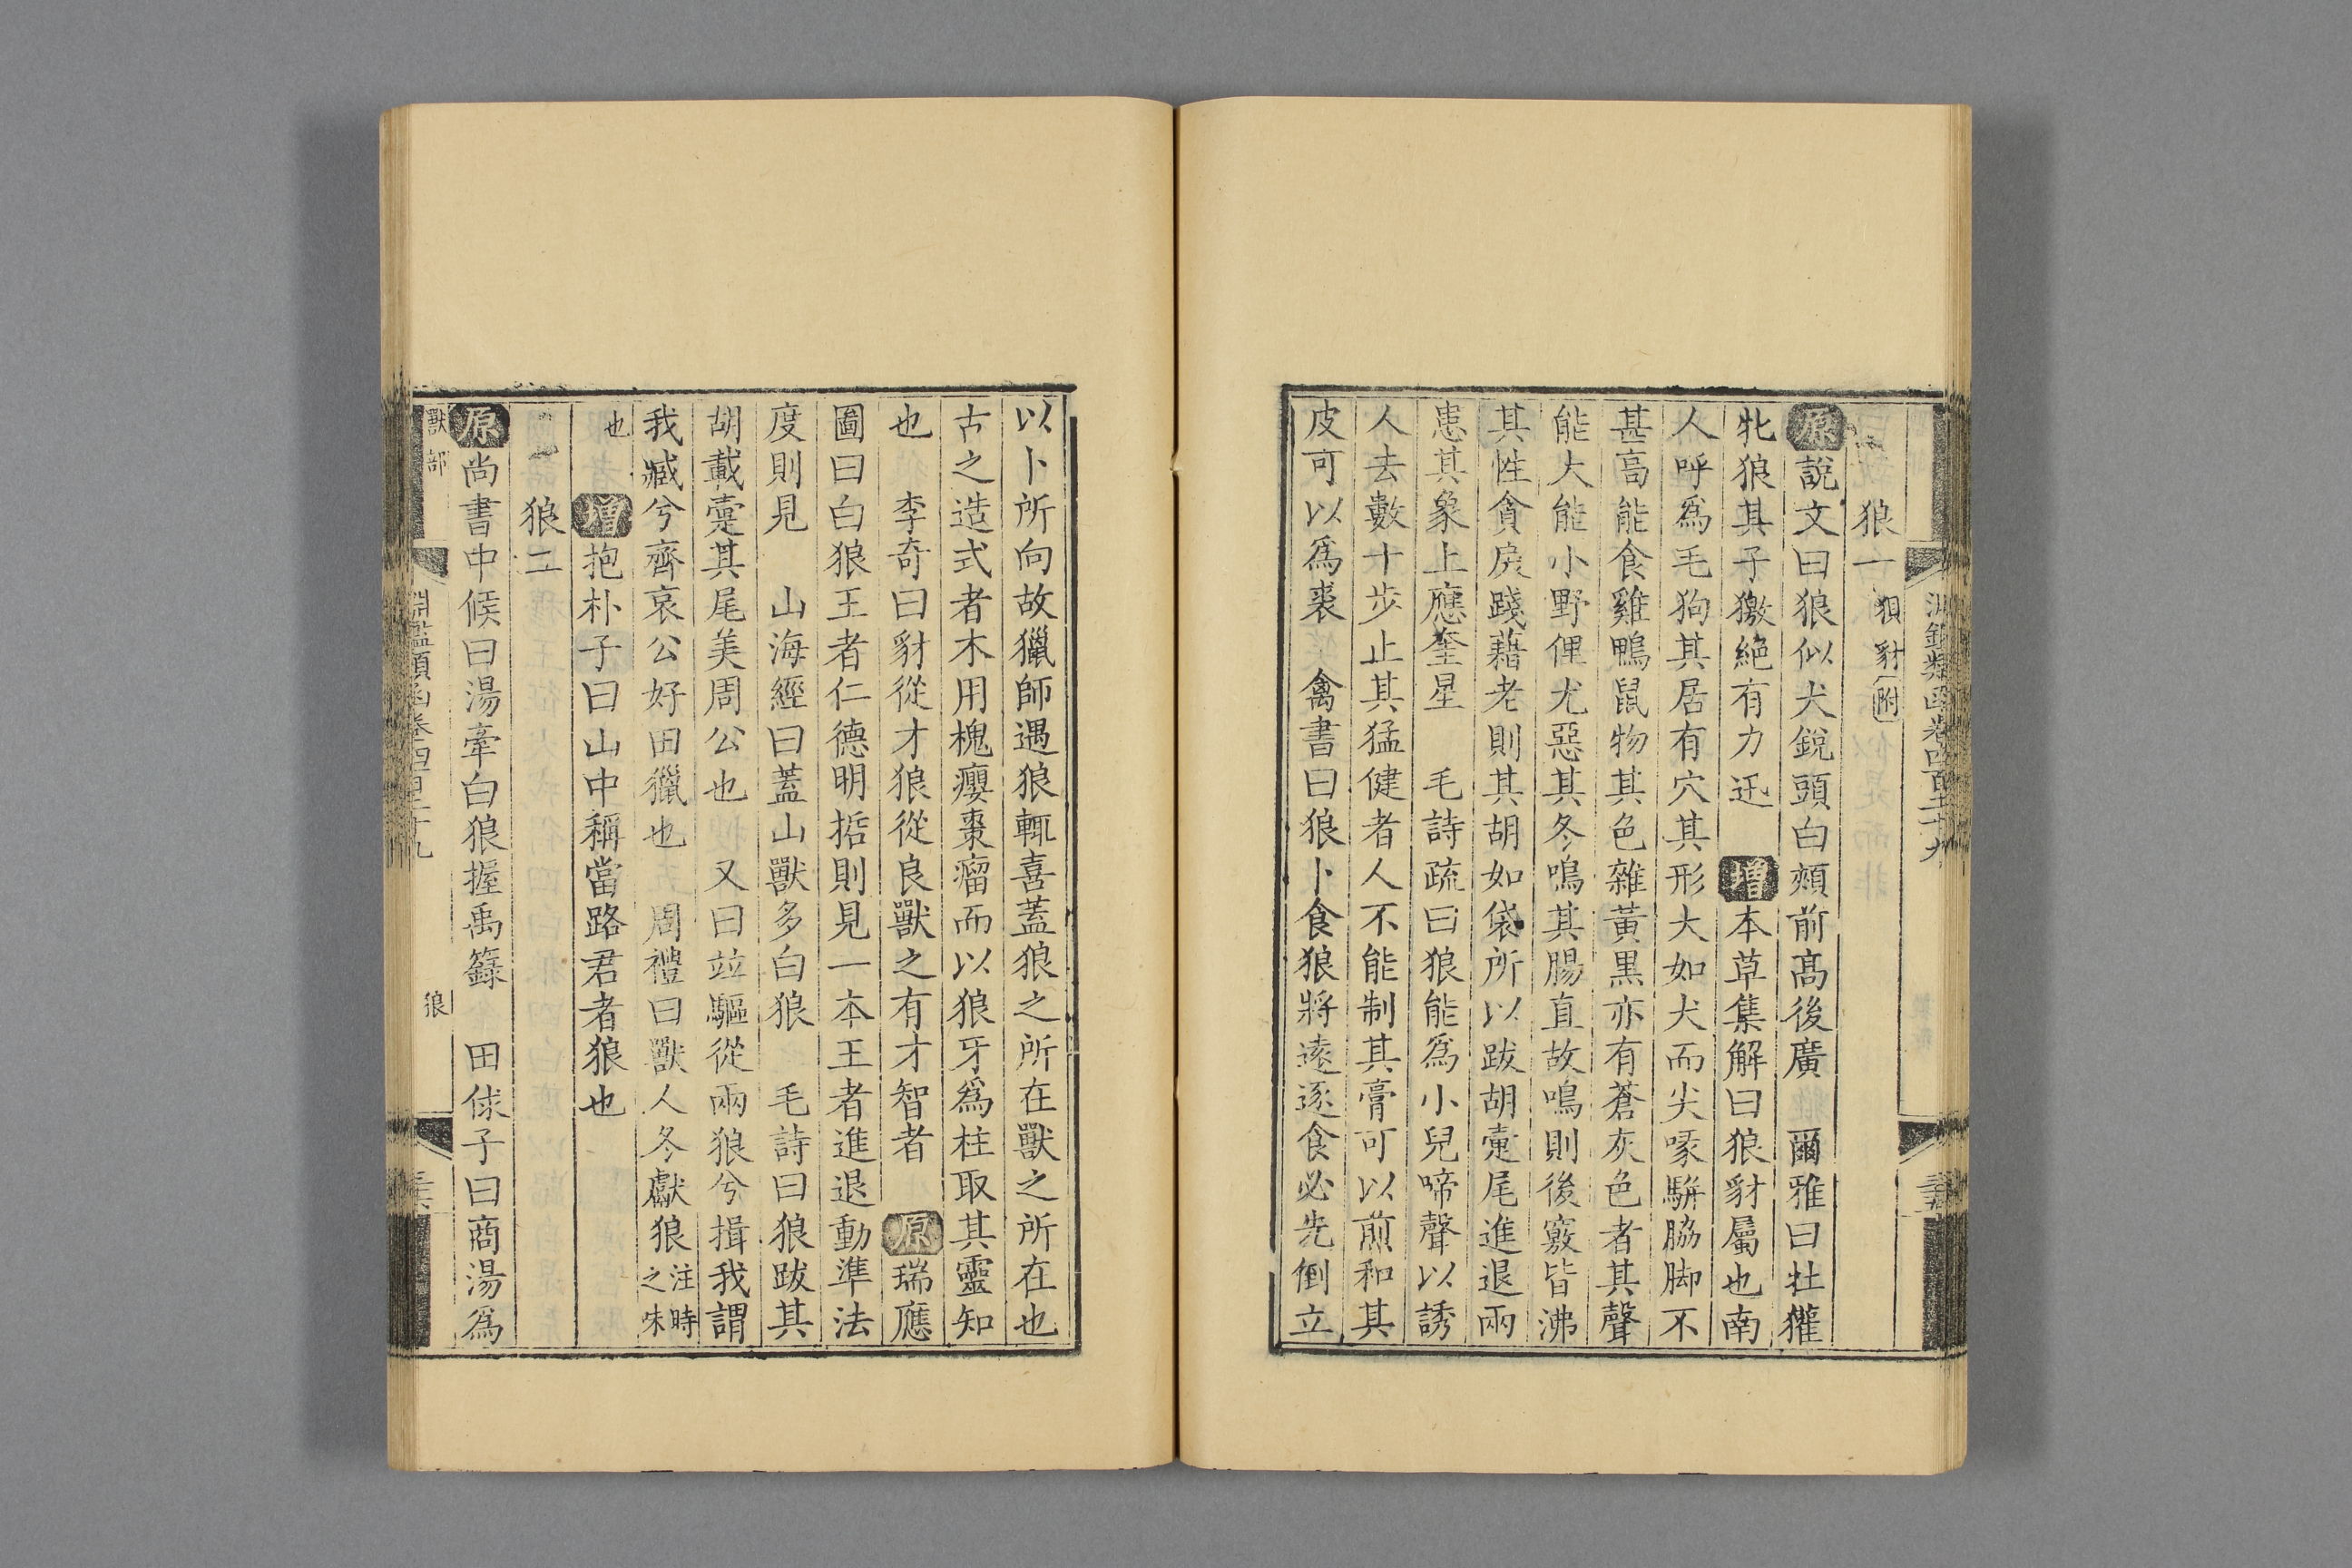 狼一 狽豺附
原說文曰狼似犬銳頭白頰前高後廣 爾雅曰牡獾
牝狼其子獥絕有力迅 增本草集解曰狼豺屬也南
人呼爲毛狗其居有穴其形大如犬而尖喙駢脇脚不
甚高能食雞鴨鼠物其色雜黃黑亦有蒼灰色者其聲
能大能小野俚尤惡其冬鳴其腸直故鳴則後竅皆沸
其性貪戾踐藉老則其胡如袋所以跋胡疐尾進退兩
患其象上應奎星 毛詩疏曰狼能爲小兒啼聲以誘
人去數十步止其猛健者人不能制其膏可以煎和其
皮可以爲裘 禽書曰狼卜食狼將遠逐食必先倒立
以卜所向故獵師遇狼輒喜蓋狼之所在獸之所在也
古之造式者木用槐癭棗瘤而以狼牙爲柱取其靈知
也 李奇曰豺從才狼從良獸之有才智者 原瑞應
圖曰白狼王者仁德明哲則見一本王者進退動準法
度則見 山海經曰蓋山獸多白狼 毛詩曰狼跋其
胡載疐其尾美周公也 又曰竝驅從兩狼兮揖我謂
我臧兮齊哀公好田獵也 周禮曰獸人冬獻狼注時之味
也 增抱朴子曰山中稱當路君者狼也
狼二
原尚書中候曰湯牽白狼握禹籙 田俅子曰商湯爲
獸部 狼